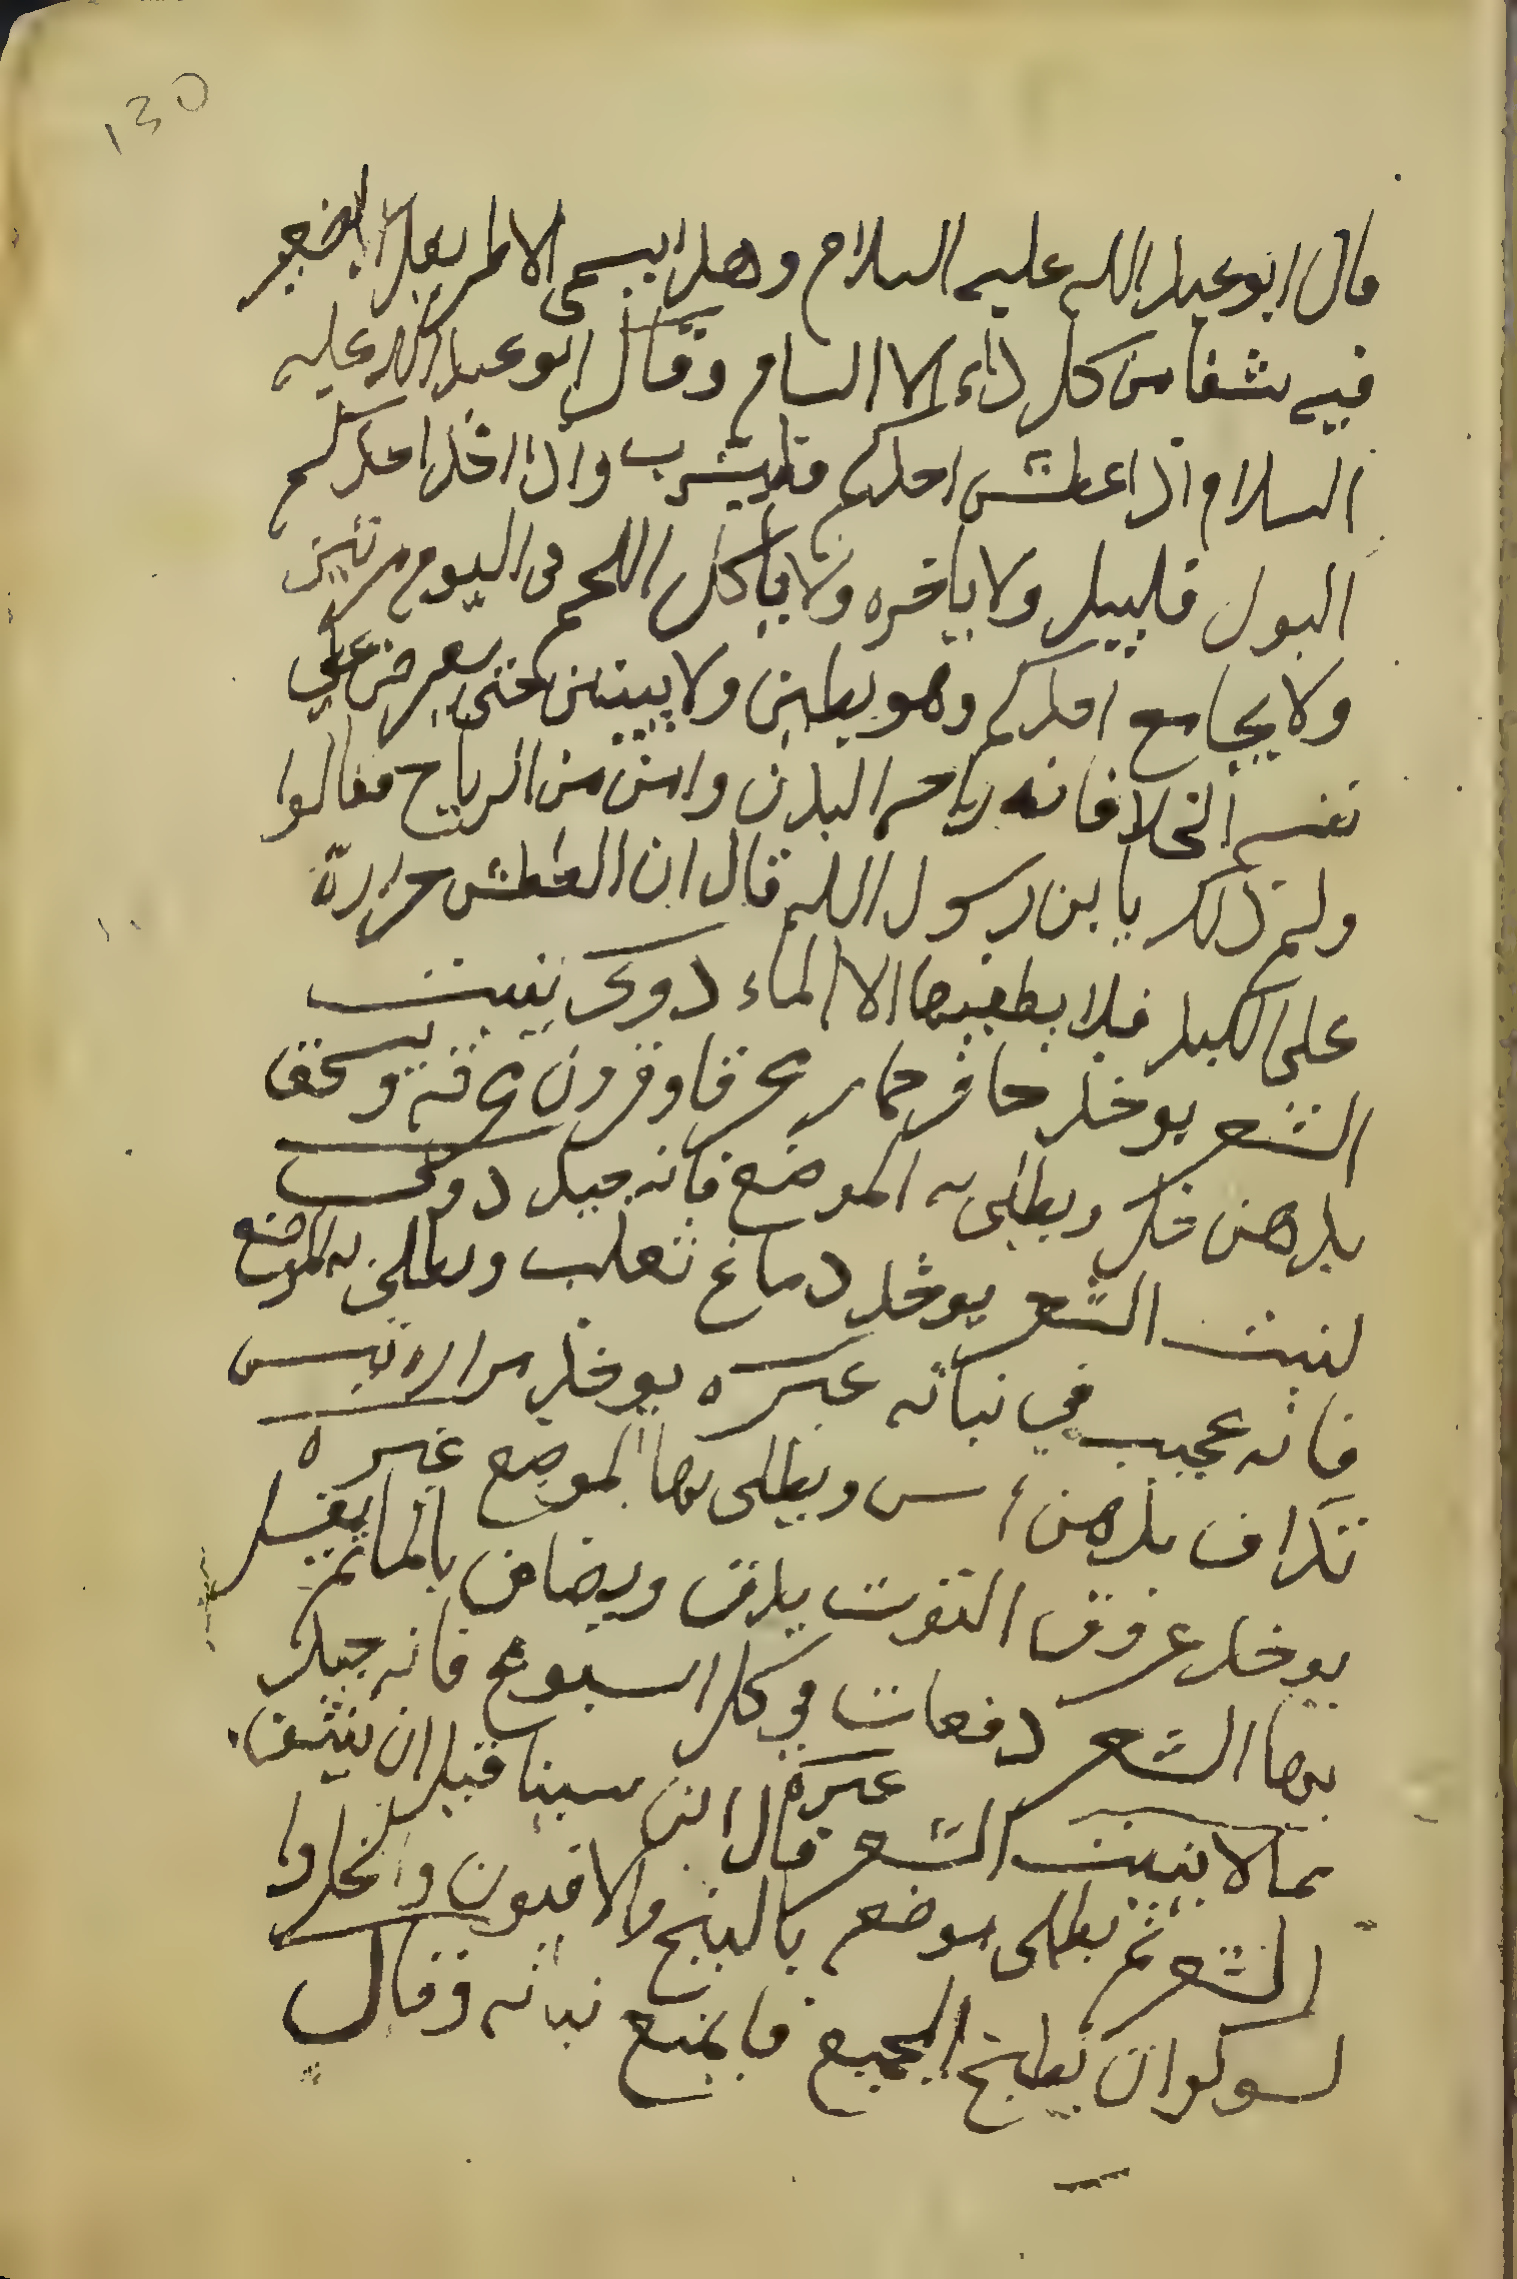 130
قال ابو عبد الله عليه السلام وهذا يسمى الاطريفل الصغير
فيه شفا من كل داء الا السام وقال ابو عبد الله عليه
السلام اذا عطش احدكم فليشرب واذا اخذ احدكم
البول فليبل ولا ياخره ولا ياكل اللحم فى اليوم مرتين
ولا يجامع احدكم وهو بطين ولا يبيتن حتى يعرض على
نفسه الخلا فانه رياحه البدن وامن من الرياح فقالوا
ولم ذلك يا بن رسول الله قال ان العطش حرارة
على الكبد فلا يطفيها الا الماء دوى ينبت
الشعر يوخذ حافر حمار محرقا وقرون محرقه ويسحق
بدهن خل ويطلى به الموضع فانه جيد دوى
لنبت الشعر يوخذ دماغ ثعلب ويطلى به الموضع
فانه عجيب في نباته غيره يوخذ مرارة تيس
تذاف بدهن اس ويطلى بها الموضع غيره
يوخذ عروق التوت يدق ويضاف بالما ثم يغسل
بها الشعر دفعات في كل اسبوع فانه جيد
غيره
مما لا ينبت الشعر قال ابن سينا قبل ان ينتف
الشعر ثم يطلى موضعه بالبنج والافيون والخل وا
لسوكران يطبخ الجميع فا يمنع نباته وقال